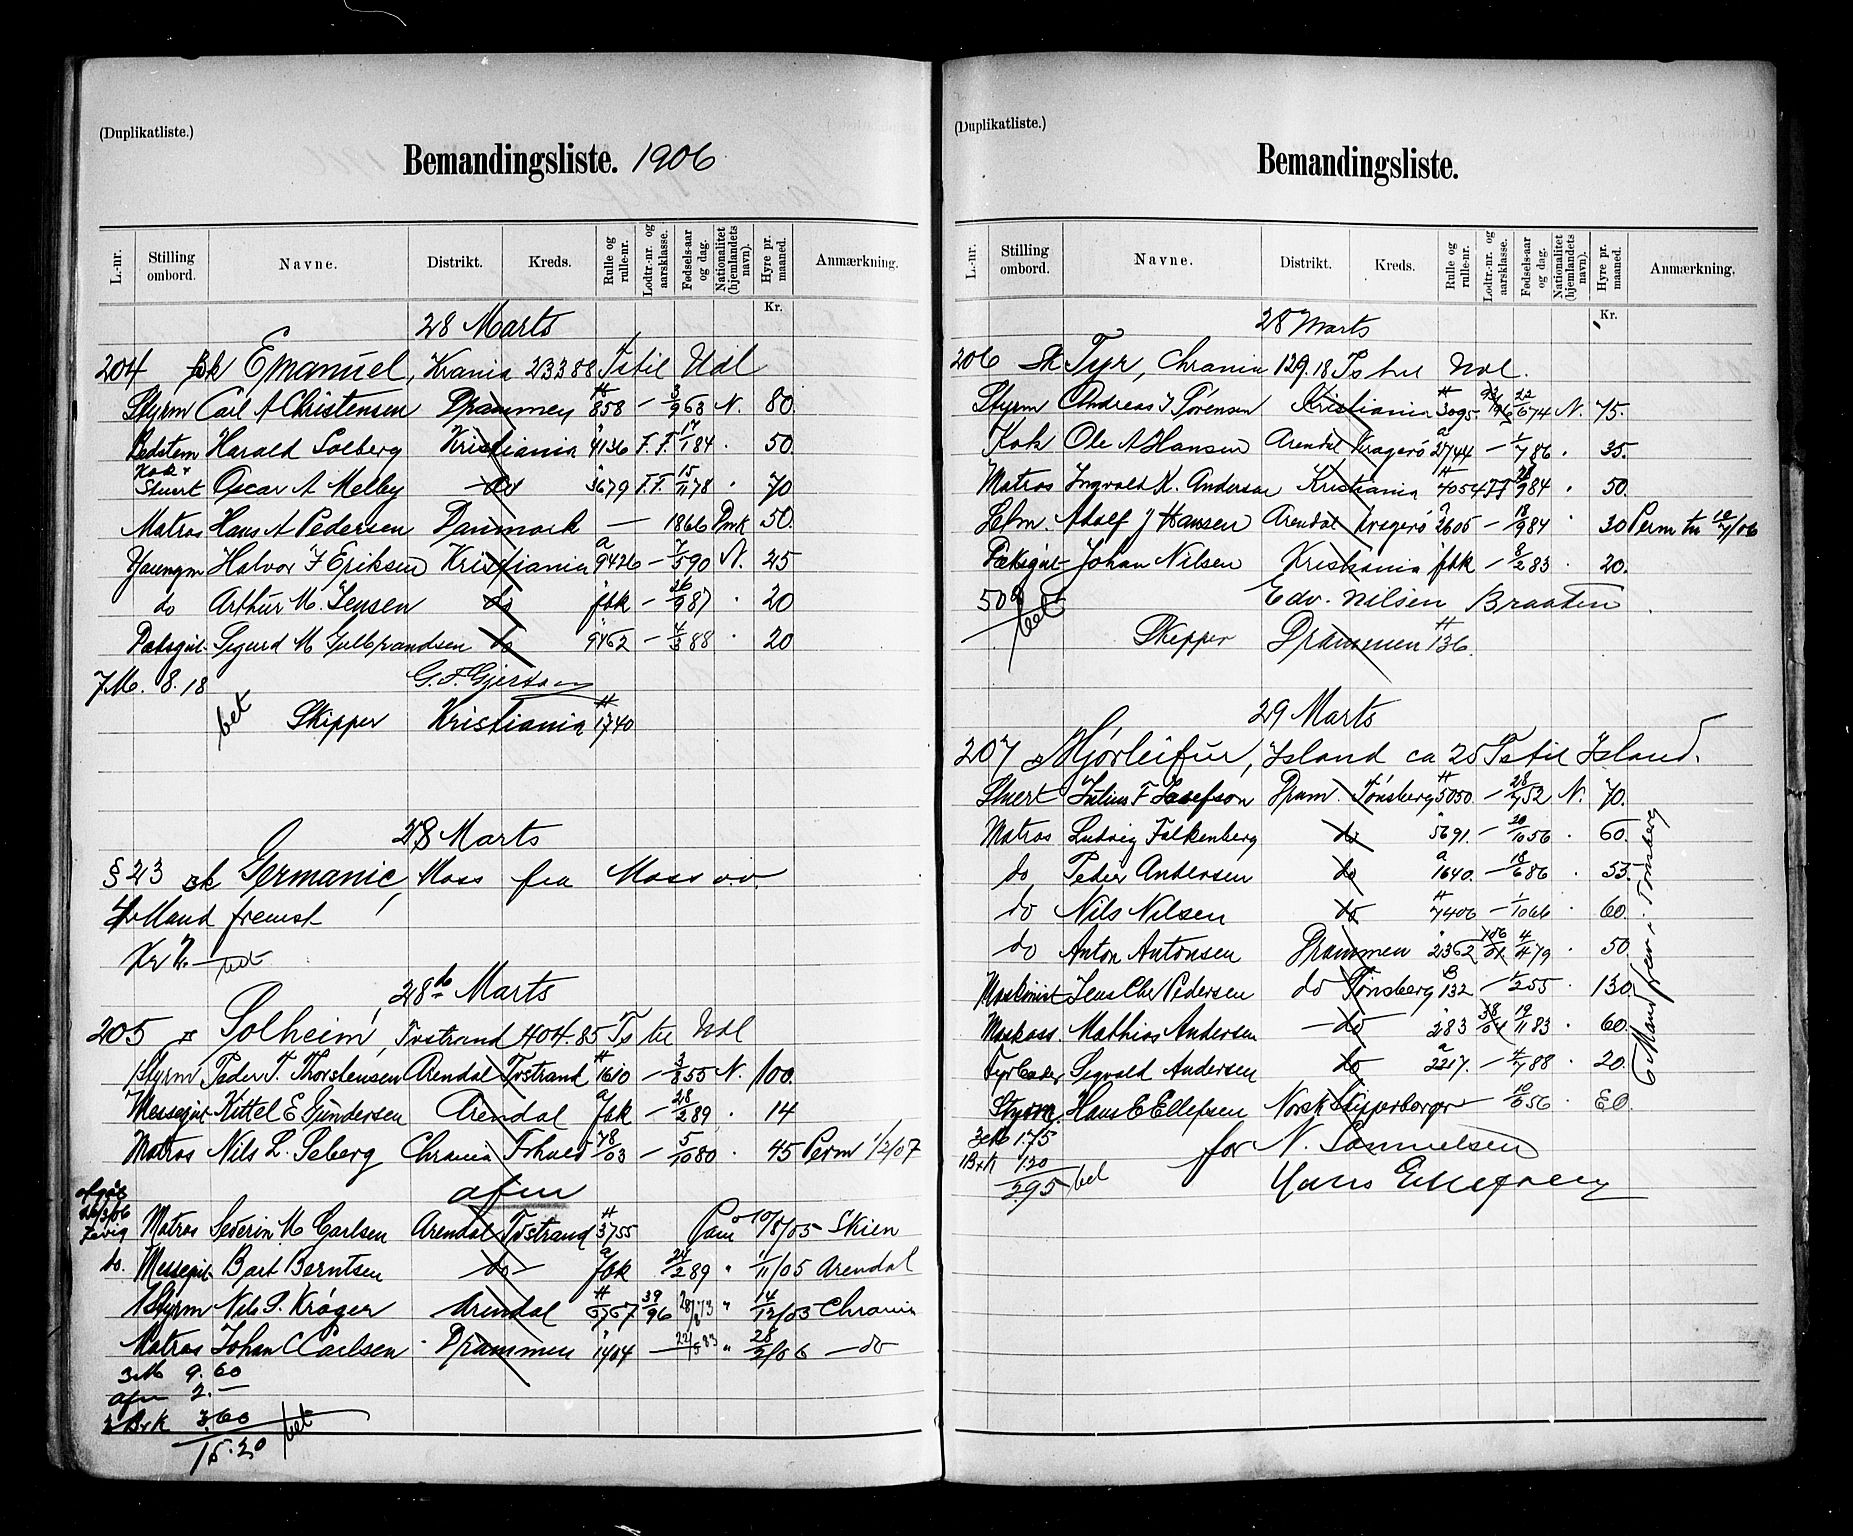 (Duplikatliste.)
Bemandingsliste. 1906
L.-nr. Stilling ombord. Navne. Distrikt. Kreds. Rulle og rulle-nr. Lodtr.-nr. og aarsklasse. Fødsels-aar og dag. Nationalitet (hjemlandets navn). Hyre pr. maaned. Anmærkning.
Kr.
28 Marts
204 Emanuel, Krania 233 88 Ts til Udl
Styrm Carl A Christensen Drammen H 858 — 3/9 63 N. 80.
Bedstem Harald Solberg Kristiania " 4136 F.F. 17/1 84 . 50.
Kok + Stuert Oscar A Melby do " 3679 F.F. 15/11 78 . 70
Matros Hans A Pedersen Danmark — 1866 Dmk 50.
Youngm Halvor F Eriksen Kristiania a 9426 — 7/5 90 N. 25
do Arthur M. Jensen do fbk — 26/9 87 . 20
Dæksgut Sigurd M Gulbrandsen do " 9462 — 4/3 88 . 20
7M. 8.18 G.F. Gjertsen
bet Skipper Kristiania H 1740
28 Marts
§ 23 sk Germanic, Moss fra Moss
Mand fremst
bet
28de Marts
205 Solheim, Tvstrand 404.85 Ts til Udl
1Styrm Peder T. Thorstensen Arendal Tvstrand H 1610 — 3/8 55 N. 100.
Messegut Kittel E Gundersen Arendal a fbk — 28/2 89 . 14
Matros Nils L. Seberg Chrania Fhald 78/03 — 5/10 80 . 45 Perm 1/2/07
afm
afgåt 26/3/06
Matros Severin M Carlsen Arendal Tvstrand H 3755 10/8/05 Skien
do. Messegut Bart Berntsen do a fbk 24/2 89 " 1/11/05 Arendal
1Styrm Nils P. Krøger Arendal H 6767 39/96 28/8 73 " 14/12/05 Chrania
Matros Johan C Carlsen Drammen " 1404 — 22/5 83 " 28/2/06 — do
3M 9.60
afm 2.—
3 Brk 3.60
15.20 bet
(Duplikatliste.)
Bemandingsliste.
L.-nr. Stilling ombord. Navne. Distrikt. Kreds. Rulle og rulle-nr. Lodtr.-nr. og aarsklasse. Fødsels-aar og dag. Nationalitet (hjemlandets navn). Hyre pr. maaned. Anmærkning.
Kr.
28 Marts
206 Sk Tyr, Chrania 129.18 Ts til Udl.
Styrm Andreas J Sørensen Kristiania H 3095 22/6 74 N. 75.
Kok Ole A Hansen Arendal Kragerø a 2744 — 1/7 86 . 35.
Matros Ingvald K. Andersen Kristiania H 4054 FF 28/9 84 " 50.
Hlm. Adolf J Hansen Arendal Kragerø a 2605 — 18/9 84 " 30 Perm til 10/7/06
Dæksgut Johan Nilsen Kristiania fbk — 8/2 83 . 20.
50 bet Edv. Nilsen Braaten
Skipper Drammen H 136.
29 Marts
207 Hjörleifur, Island ca 25 Ts til Island.
Stuert Julius F Josefson Dram. Tønsberg H 5050 — 28/7 52 N. 70.
Matros Ludvig Falkenberg do " 5691. — 20/10 56 . 60.
do Peder Andersen do a 1640. — 18/6 86 . 55.
do Nils Nilsen do H 7406 — 1/10 66 . 60.
do Anton Antonsen Drammen " 2362 106/01 4/4 79 . 50.
Maskinist Jens Chr Pedersen do Tønsberg B 132 — 1/2 55 . 130
Maskass. Mathias Andersen — do " 283 38/04 19/11 83 . 60.
Fyrbøder Sigvald Andersen do a 2217. — 4/7 88 . 20.
Styrm. Hans E Ellefsen Norsk Skipperborger — 10/6 56 . 80.
6 Mand frem i Tønsberg
3M 1.75 for N. Samuelsen
1Brk 1.20 Hans Ellefsen
2.95 bet